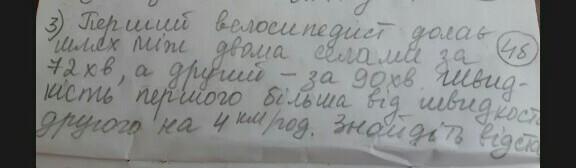 3) Перший велосипедист долав
шлях між двома селами за
72хв, а другий – за 90хв. Швид-
кість першого більша від швидкост
другого на 4 км/год. Знайдіть відста
4б